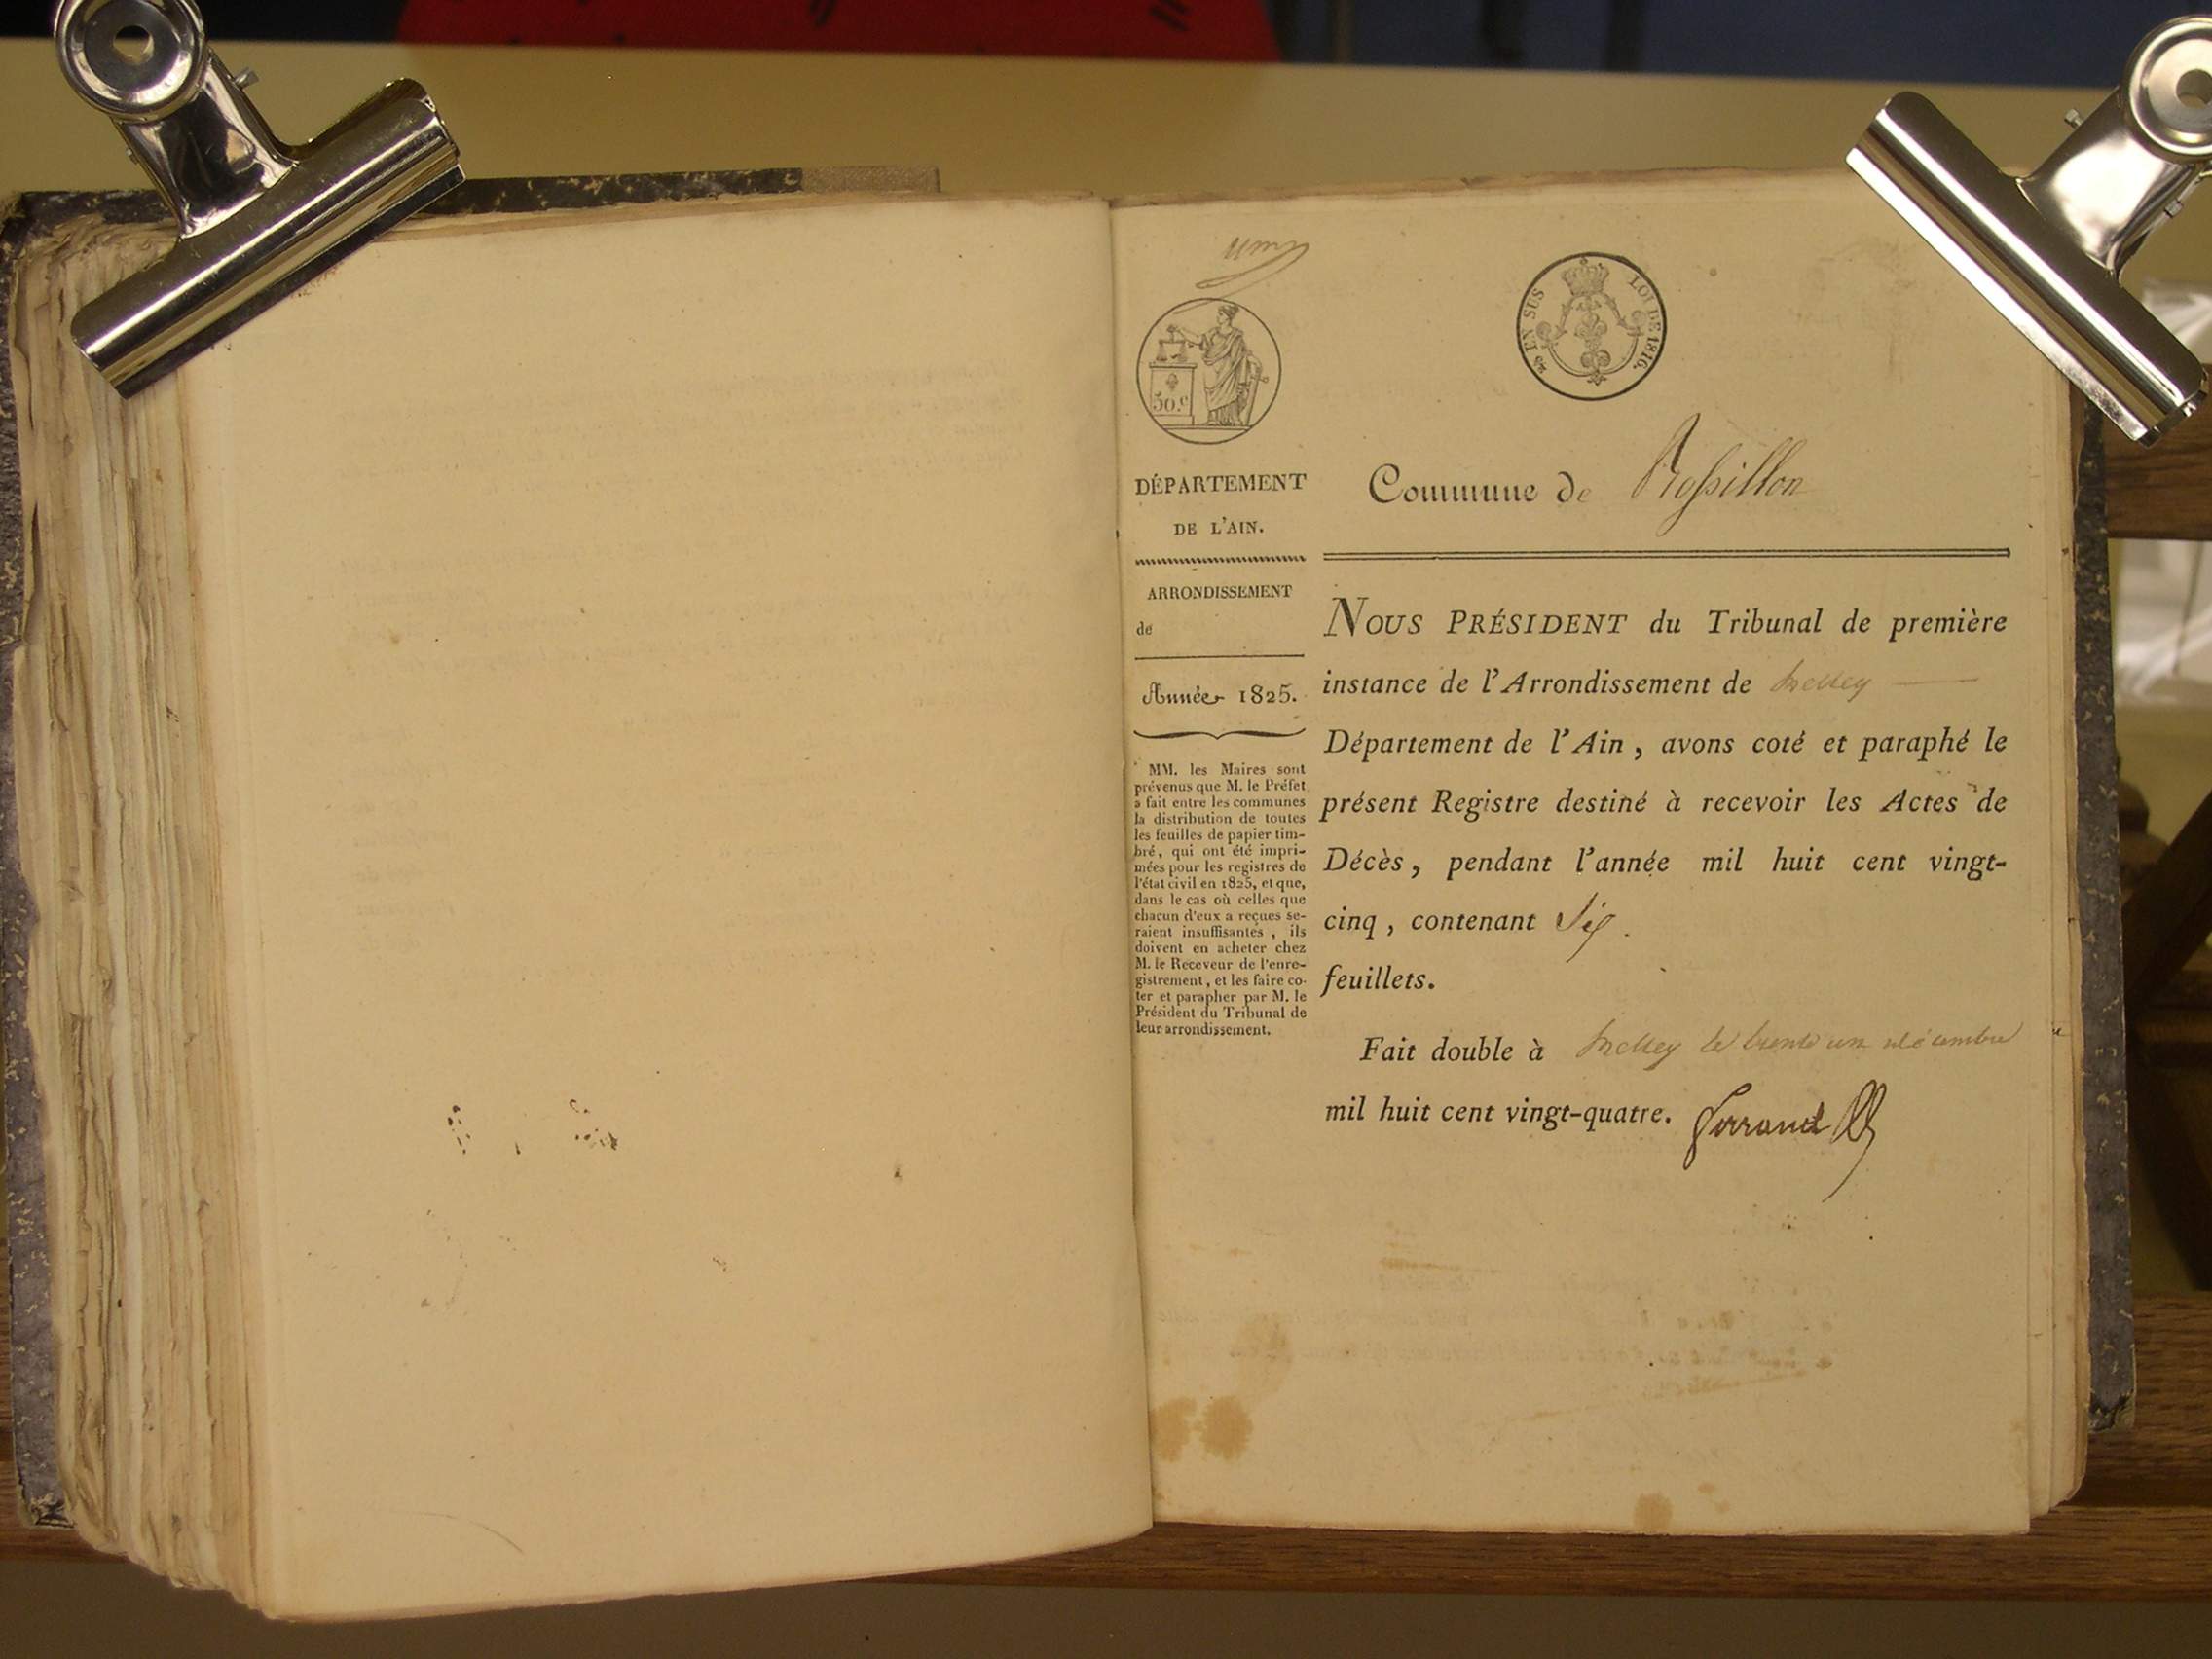 50.c
EN SUS
LOI DE 1816.
DÉPARTEMENT
DE L'AIN.
ARRONDISSEMENT
de
Année 1825.
MM. les Maires sont
prévenus que M. le Préfet
a fait entre les communes
la distribution de toutes
les feuilles de papier tim-
bré, qui ont été impri-
mées pour les registres de
l'état civil en 1825, et que,
dans le cas où celles que
chacun d'eux a reçues se-
raient insuffisantes, ils
doivent en acheter chez
M. le Receveur de l'enre-
gistrement, et les faire co-
ter et parapher par M. le
Président du Tribunal de
leur arrondissement.
Commune de Rossillon
NOUS PRÉSIDENT du Tribunal de première
instance de l'Arrondissement de Belley
Département de l'Ain, avons coté et paraphé le
présent Registre destiné à recevoir les Actes de
Décès, pendant l'année mil huit cent vingt-
cinq, contenant Six
feuillets.
Fait double à Belley le trente un décembre
mil huit cent vingt-quatre. Ferrand